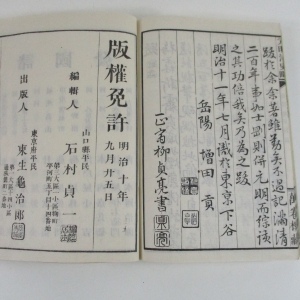 跋於余余著雖勤矣不過記滿清
二百年事如士劉則併元明而綜該
之其功倍我矣乃爲之跋
明治十一年七月識於東京下谷
岳陽 增田貢
正齋柳貞亮書
版權免許 明治十年九月廿五日
編輯人
山口縣平民
石村貞一
出版人
東京府平民
東生龜治郎